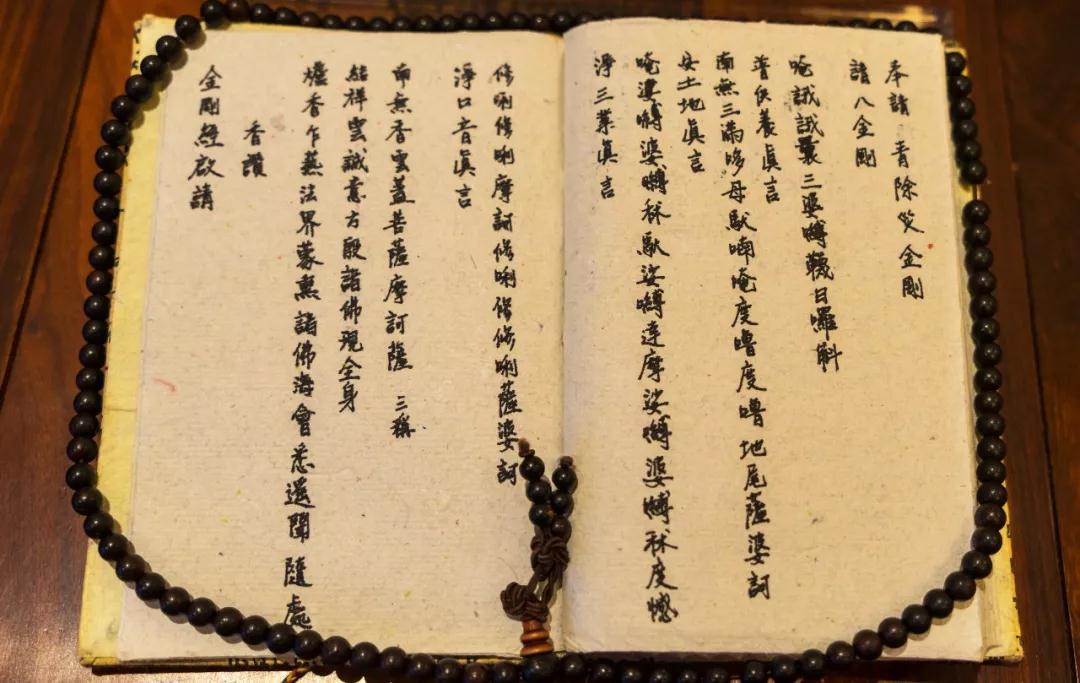 金剛經啟請
香讚
爐香乍爇法界蒙熏諸佛海會悉遙聞 隨處
結祥雲誠意方殷諸佛現全身
南無香雲蓋菩薩摩訶薩 三稱
淨口音眞言
修唎修唎摩訶修唎修修唎薩婆訶
淨三業眞言
唵娑嚩婆嚩秫馱娑嚩達摩娑嚩婆嚩秫度憾
安土地眞言
南無三滿哆母馱喃唵度嚕度嚕地尾薩婆訶
普供養眞言
唵誐誐曩三婆嚩韈日囉斛
請八金剛
奉請 青除災金剛